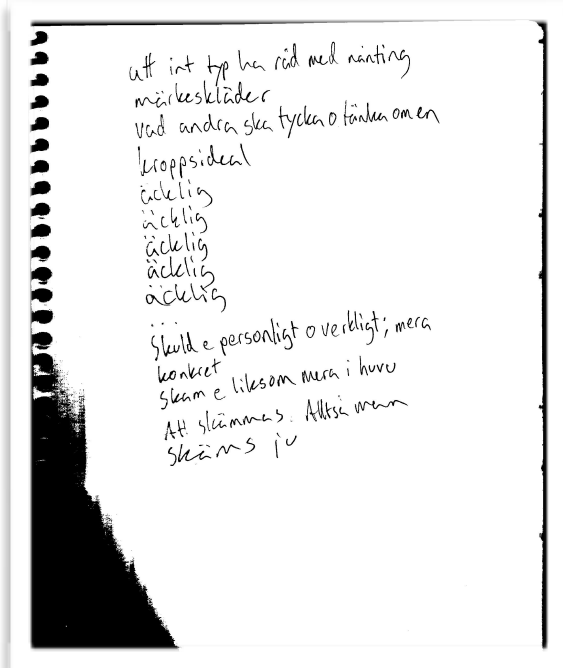 att int typ ha råd med nånting
märkeskläder
vad andra ska tycka o tänka om en
kroppsideal
äcklig
äcklig
äcklig
äcklig
äcklig
...
Skuld e personligt o verkligt; mera
konkret
skam e liksom mera i huvu
Att skämmas. Alltså man
skäms ju